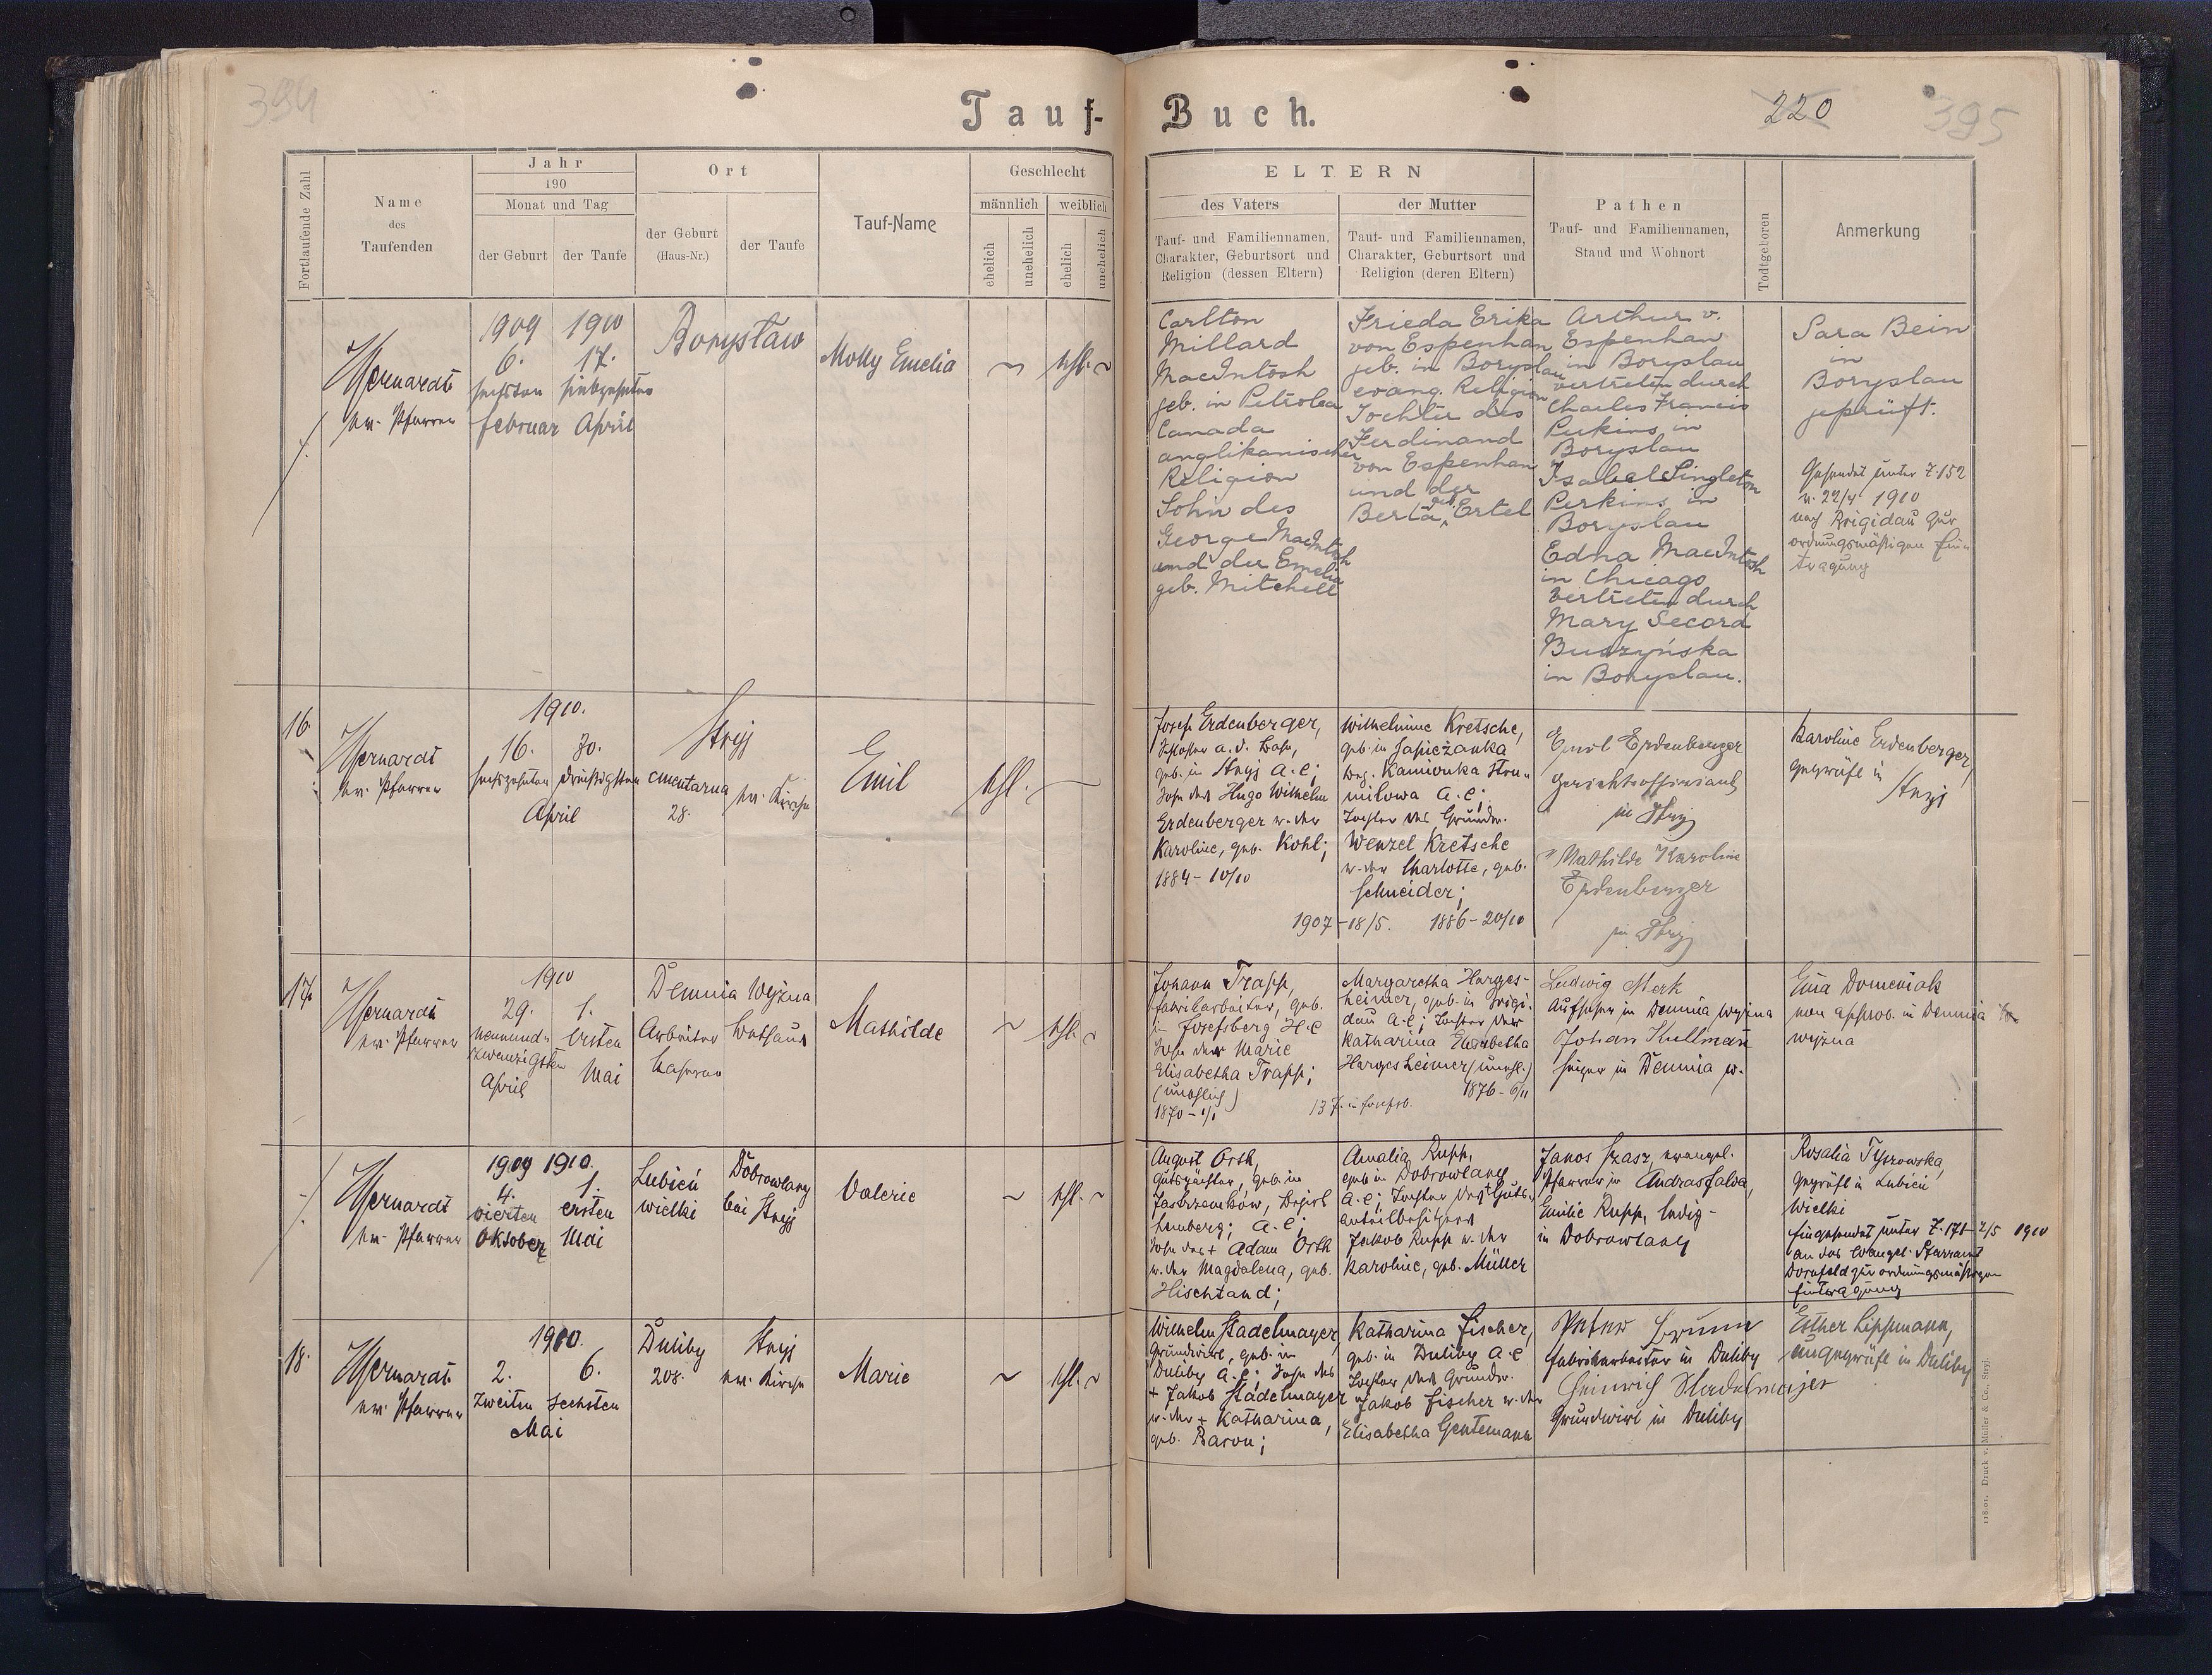 394
Tauf-
Buch.
220
395
Fortlaufende Zahl
Name
des
Taufenden
Jahr
190
Monat und Tag
der Geburt
der Taufe
Ort
der Geburt
(Haus-Nr.)
der Taufe
Tauf-Name
Geschlecht
männlich
weiblich
ehelich
unehelich
ehelich
unehelich
ELTERN
des Vaters
Tauf- und Familiennamen,
Charakter, Geburtsort und
Religion (dessen Eltern)
der Mutter
Tauf- und Familiennamen,
Charakter, Geburtsort und
Religion (deren Eltern)
Pathen
Tauf- und Familiennamen,
Stand und Wohnort
Todtgeboren
Anmerkung
ev. Pfarrer
1909
6.
sechsten
februar
1910
17.
siebzehnten
April
Borysław
Molly Emelia
~
ehl. ~
Carlton
Millard
MacIntosh
geb. in Petrolea
Canada
anglikanischer
Religion
Sohn des
George MacIntosh
und der Emelia
geb. Mitchell
Frieda Erika
von Espenhan
geb. in Boryslau
evang. Religion
Tochter des
Ferdinand
von Espenhan
und der
Berta geb. Ertel
Arthur v.
Espenhan
in Boryslau
vertreten durch
Charles Francis
Perkins in
Boryslau
Isabel Singleton
Perkins in
Boryslau
Edna MacIntosh
in Chicago
vertreten durch
Mary Secord
Buszyńska
in Boryslau.
Sara Bein
in
Boryslau
geprüft.
Gesendet unter Z. 152
v. 22/4 1910
nach Brigidau zur
ordnungsmäßigen Ein-
tragung
16.
ev. Pfarrer
1910.
16.
sechszehnten
30.
dreißigsten
April
Stryj
cmentarna
28.
ev. Kirche
Emil
ehl. ~
Josef Erdenberger,
Schlosser a. d. Bahn,
geb. in Stryj A. C;
Sohn des Hugo Wilhelm
Erdenberger u. der
Karoline, geb. Kohl;
1884 - 10/10
Wilhelmine Kretsche,
geb. in Sapieżanka
Bez. Kamionka Stru-
miłowa A. C;
Tochter des Grundw.
Wenzel Kretsche
u. der Charlotte, geb.
Schneider;
1907 - 18/5.
1886 - 20/10
Emil Erdenberger
Gerichtsoffiziant
in Stryj
Mathilde Karoline
Erdenberger
in Stryj
Karoline Erdenberger,
geprüft in
Stryj
17.
ev. Pfarrer
1910
29.
neunund-
zwanzigsten
April
1.
ersten
Mai
Demnia Wyżna
Arbeiter
Kaserne
Bethaus
Mathilde
~
ehl. ~
Johann Trapp,
Fabriksarbeiter, geb.
in Josefsberg H. C
Sohn der Marie
Elisabetha Trapp;
(unehelich)
1870 - 1/1
Margaretha Harges-
heimer, geb. in Brigi-
dau A. C; Tochter der
Katharina Elisabetha
Hargesheimer (unehl.)
1876 - 6/11
Ludwig Merk
Aufseher in Demnia wyżna
Johan Kullman
Heizer in Demnia w.
Ena Domeniak
non approb. in Demnia
wyżna
ev. Pfarrer
1909
4.
vierten
Oktober
1910.
1.
ersten
Mai
Lubień
wielki
Dobrowlany
bei Stryj
Valerie
~
ehl. ~
August Orth,
Gutspächter, geb. in
Jastrzembków, Bezirk
Lemberg; A. C;
Sohn des + Adam Orth
u. der Magdalena, geb.
Hischtand;
Amalia Rupp,
geb. in Dobrowlany
A. C; Tochter des Guts-
anteilbesitzers
Jakob Rupp u. der
Karoline, geb. Müller
Janos Szasz, evangel.
Pfarrer in Andrasfalva,
Emilie Rupp, ledig -
in Dobrowlany
Rosalia Tyszowska,
geprüft in Lubień
Wielki
Eingesendet unter Z. 171 - 2/5 1910
an das evangel. Pfarramt
Dornfeld zur ordnungsmäßigen
Eintragung
18.
ev. Pfarrer
1910.
2.
6.
Zweiten
Sechsten
Mai
Duliby
208.
Stryj
ev. Kirche
Marie
~
ehl. ~
Wilhelm Stadelmayer,
Grundwirt, geb. in
Duliby A. C; Sohn des
+ Jakob Stadelmayer
u. der + Katharina,
geb. Baron;
Katharina Fischer,
geb. in Duliby A. C
Tochter des Grundw.
Jakob Fischer u. der
Elisabetha Gentemann
Peter
Fabriksarbeiter in Duliby
Heinrich Stadelmajer
Grundwirt in Duliby
Esther Lippmann,
ungeprüft in Duliby
118.01. Druck v. Müller & Co., Stryj.